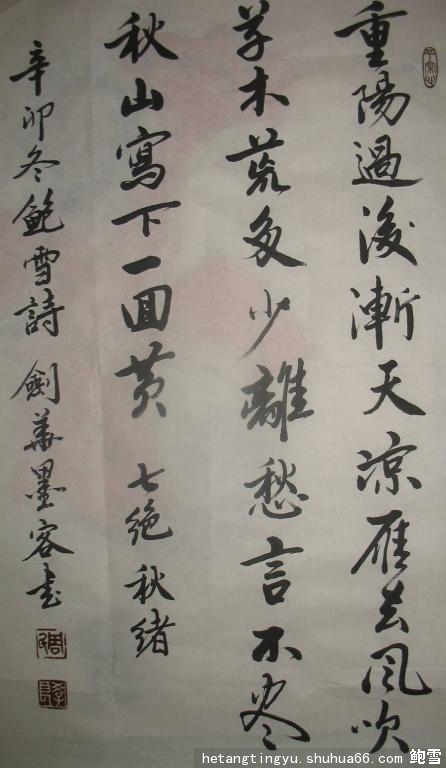 重陽過後漸天涼雁去風吹
草木荒多少離愁言不尽
秋山寫下一回黄 七绝 秋绪
辛卯冬鲍雪詩 劍華墨客书
hetangtingyu.shuhua66.com 鲍雪